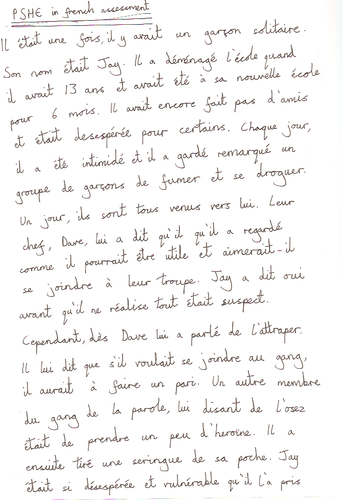 PSHE in french assessment
Il était une fois, il y avait un garçon solitaire.
Son nom était Jay. Il a déménagé l'école quand
il avait 13 ans et avait été à sa nouvelle école
pour 6 mois. Il avait encore fait pas d'amis
et était desespérée pour certains. Chaque jour,
il a été intimidé et il a gardé remarqué un
groupe de garçons de fumer et se droguer.
Un jour, ils sont tous venus vers lui. Leur
chef, Dave, lui a dit qu'il qu'il a regardé
comme il pourrait être utile et aimerait-il
se joindre à leur troupe. Jay a dit oui
avant qu'il ne réalise tout était suspect.
Cependant, dès Dave lui a parlé de l'attraper.
Il lui dit que s'il voulait se joindre au gang,
il aurait à faire un pari. Un autre membre
du gang de la parole, lui disant de l'osez
était de prendre un peu d'heroine. Il a
ensuite tiré une seringue de sa poche. Jay
était si désespérée et vulnérable qu'il l'a pris